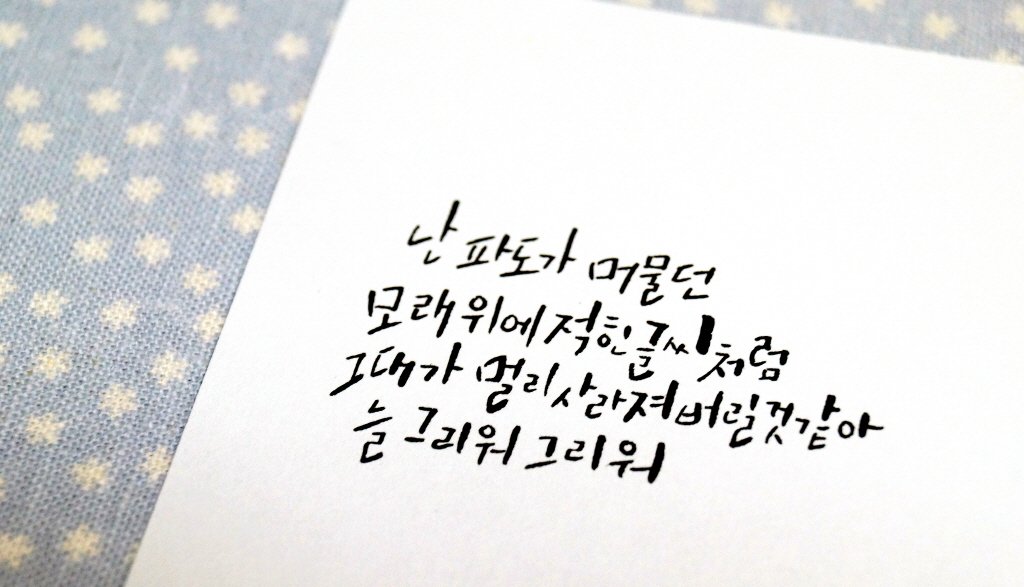 난 파도가 머물던
모래 위에 적힌 글씨처럼
그대가 멀리 사라져 버릴 것 같아
늘 그리워 그리워